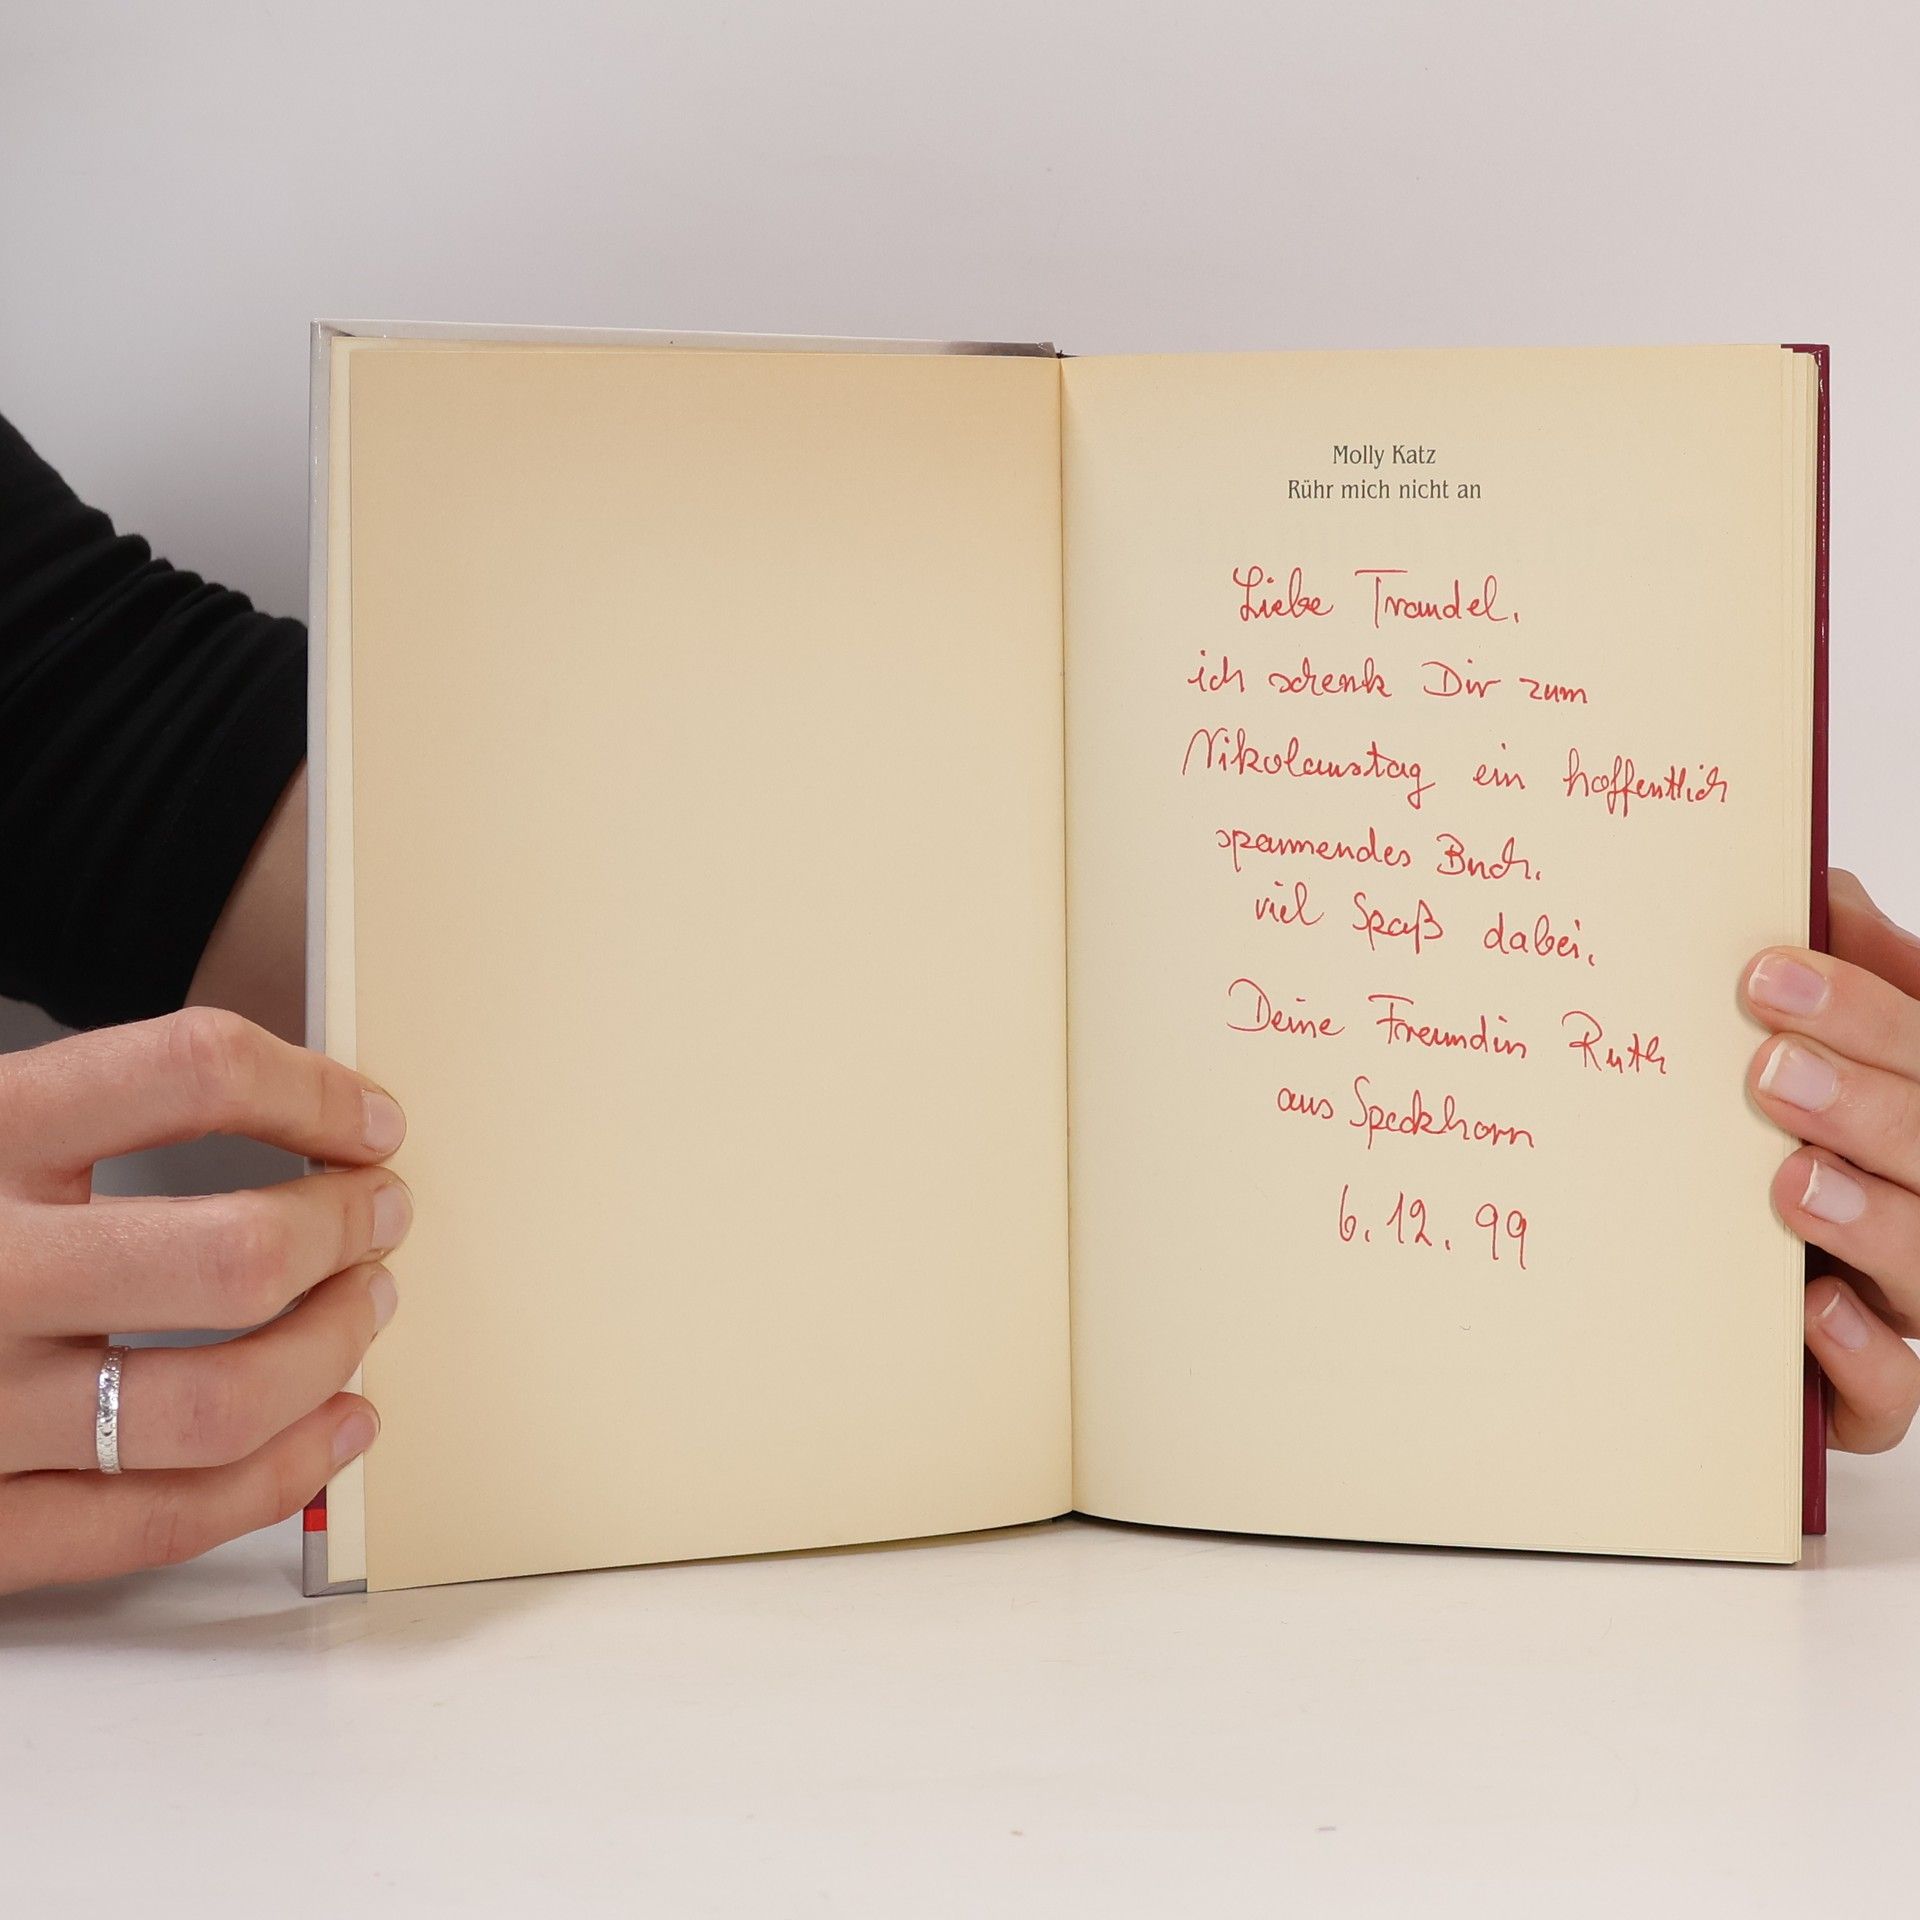 Molly Katz
Rühr mich nicht an
Liebe Traudel,
ich schenk Dir zum
Nikolaustag ein hoffentlich
spannendes Buch.
viel Spaß dabei.
Deine Freundin Ruth
aus Speckhorn
6.12.99